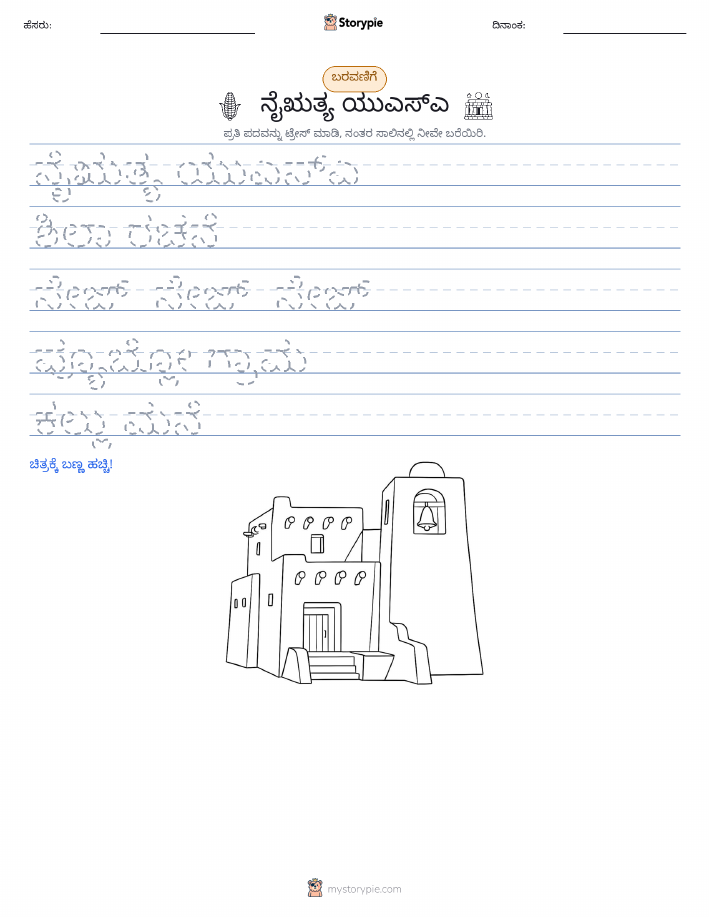 ಹೆಸರು:
Storypie
ದಿನಾಂಕ:
ಬರವಣಿಗೆ
ನೈಋತ್ಯ ಯುಎಸ್ಎ
ಪ್ರತಿ ಪದವನ್ನು ಟ್ರೇಸ್ ಮಾಡಿ, ನಂತರ ಸಾಲಿನಲ್ಲಿ ನೀವೇ ಬರೆಯಿರಿ.
ನೈಋತ್ಯ ಯುಎಸ್ಎ
ಶಿಲಾ ರಚನೆ
ಸೇಜ್ ಸೇಜ್ ಸೇಜ್
ಪ್ಯೂಬ್ಲೋ ಗ್ರಾಮ
ಕಲ್ಲು ಮನೆ
ಚಿತ್ರಕ್ಕೆ ಬಣ್ಣ ಹಚ್ಚಿ!
mystorypie.com